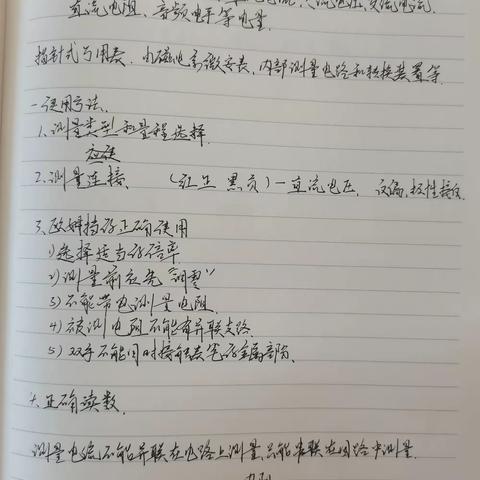 直流电压、交流电流、
直流电阻、音频电平等电量.
指针式万用表. 由磁电系微安表、内部测量电路和转换装置等
一使用方法.
1.测量类型和量程选择.
2.测量连接. (红正 黑负)—直流电压. 反偏,极性接反
3、欧姆挡的正确使用
1)选择适当的倍率
2)测量前应先"调零"
3)不能带电测量电阻.
4)被测电阻不能有并联支路.
5)双手不能同时接触表笔的金属部分.
4.正确读数.
测量电流不能并联在电路上测量.只能串联在回路中测量.